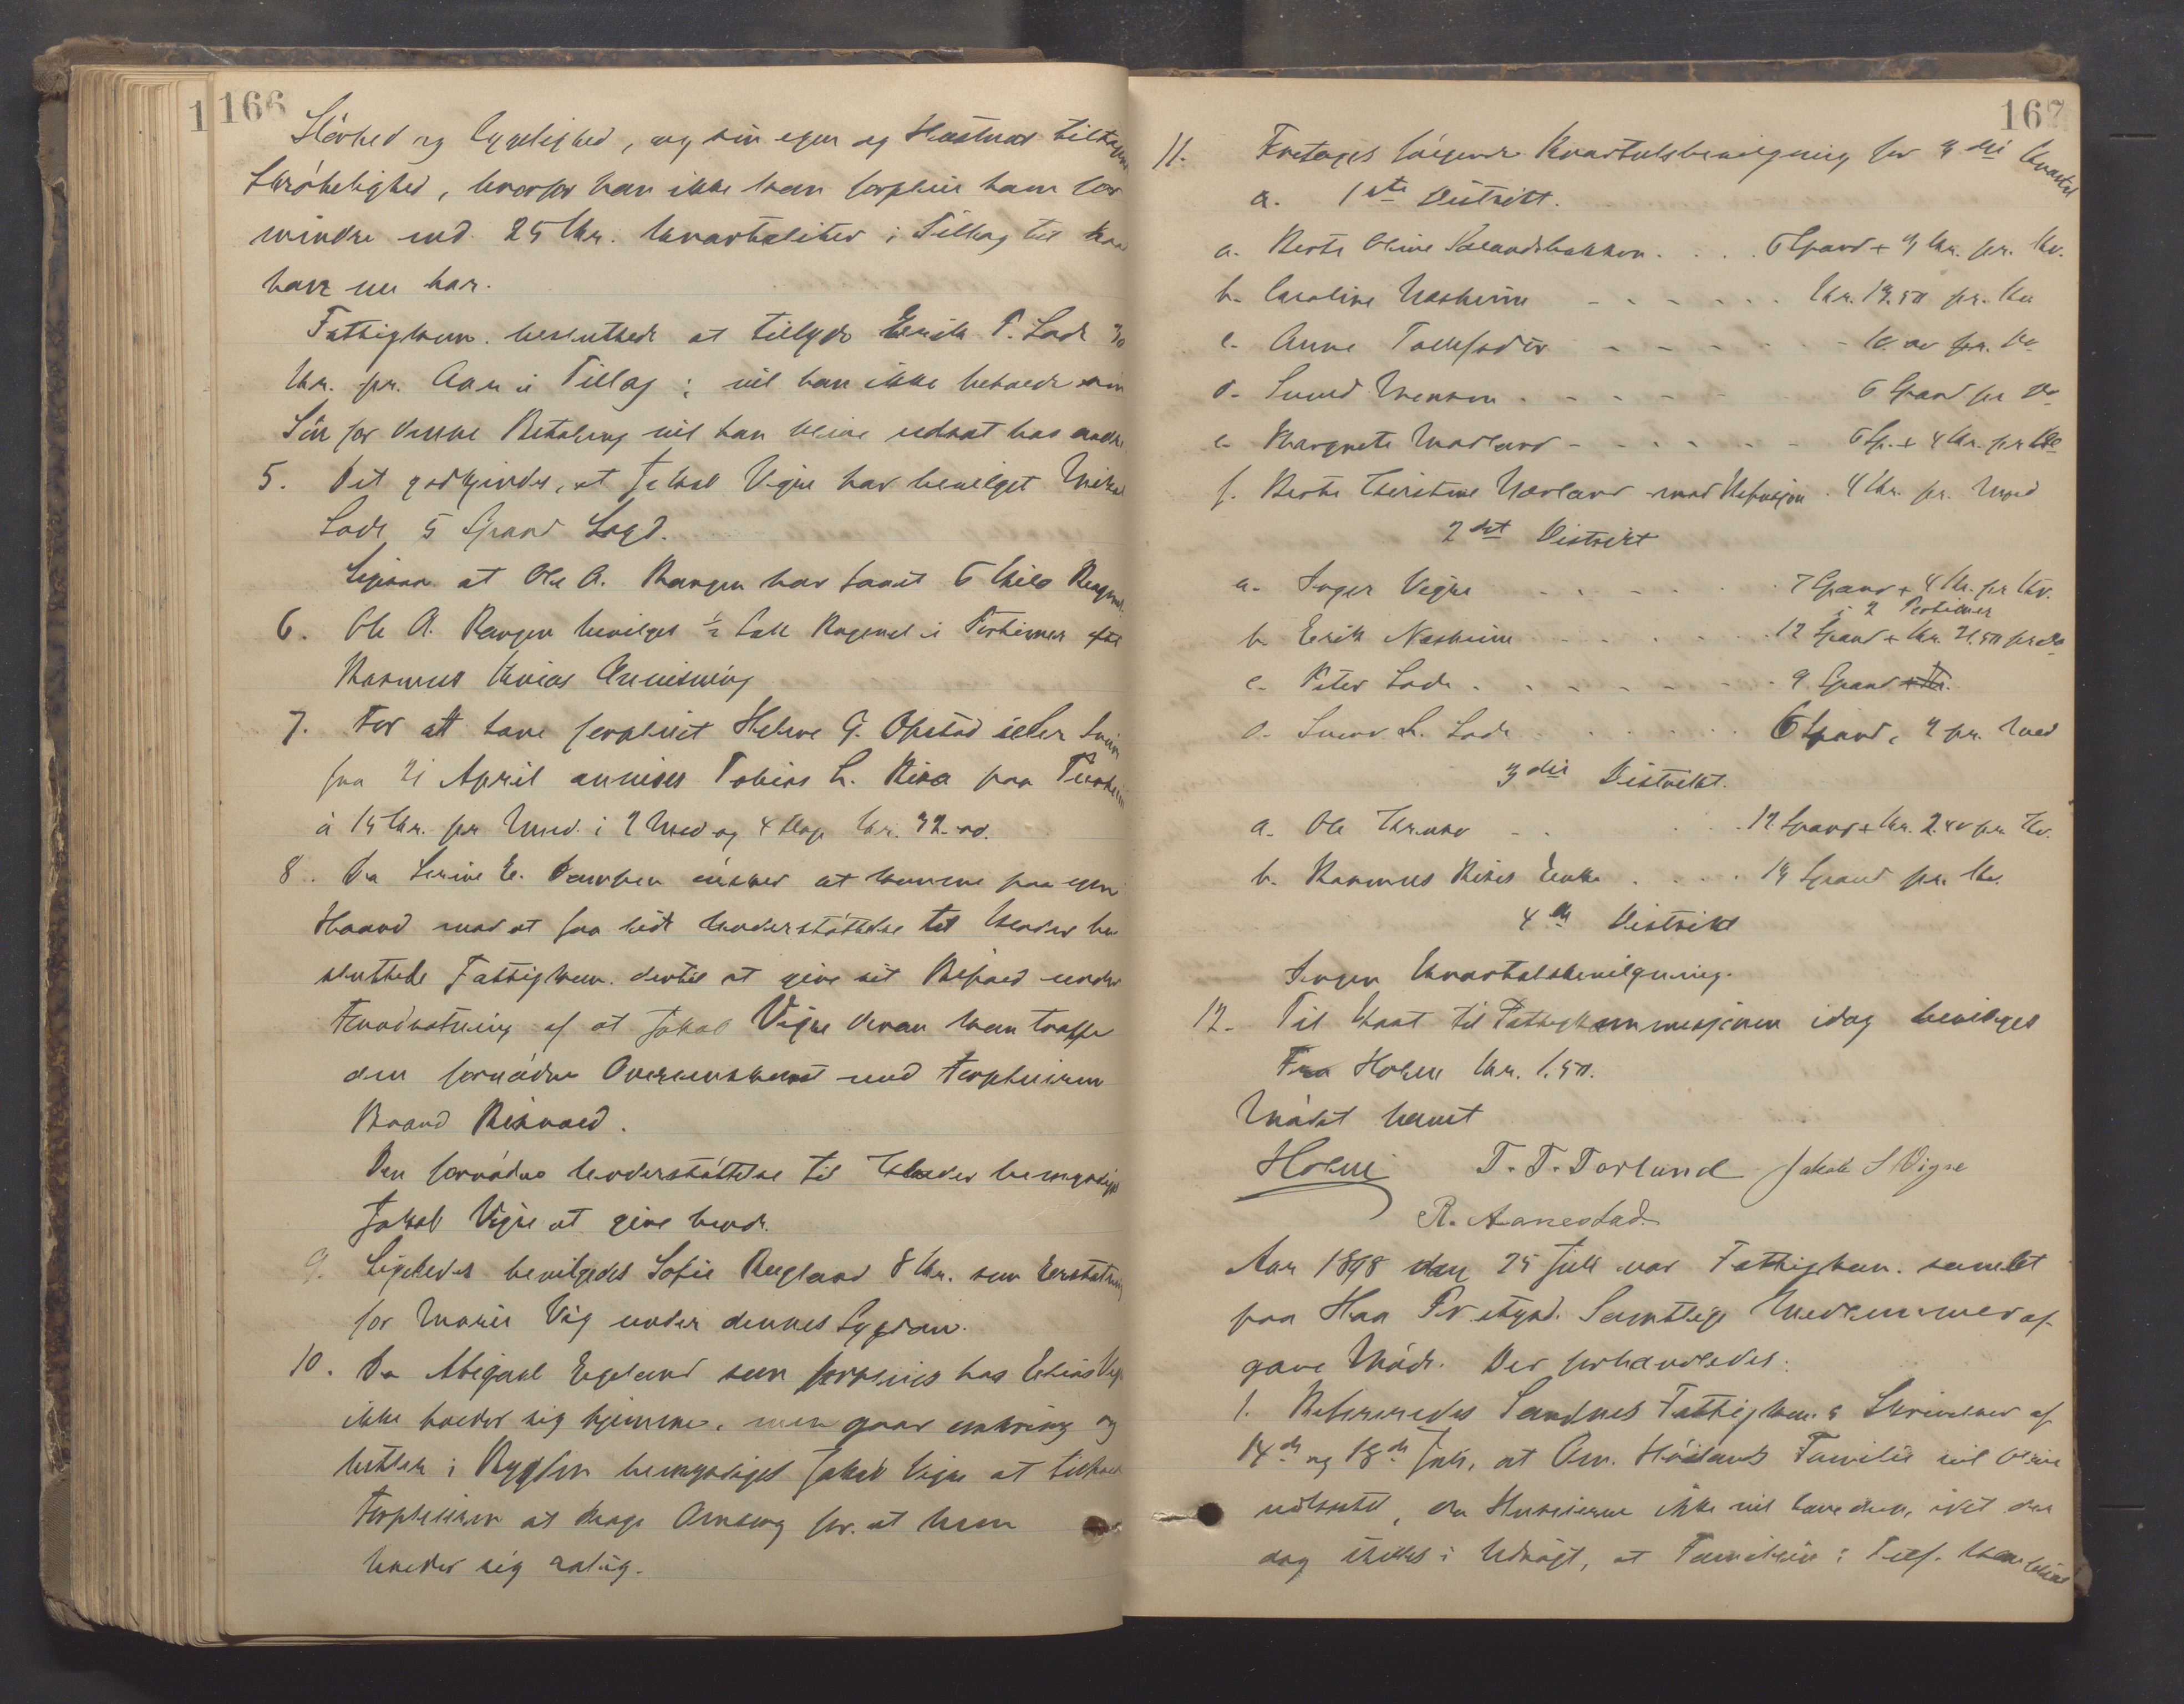 166
Slövhed og Sygelighed, og sin egen og Hustrus tiltagende
Skröbelighed, hvorfor han ikke kan forpleie ham for
mindre end 25 Kr. kvartaliter i Tillæg til hvad
han nu har.
Fattigkom. besluttede at tillyde Erik P. Lode 30
Kr. pr. Aar i Tillæg; vil han ikke beholde sin
Sön for denne Betaling vil han blive udsat hos andre
5. Det godkjendes, at Jakob Vigre har bevilget Mikal
Lode 5 Spand Lagd.
Ligesaa at Ole A. Rangen har faaet 6 Kilo Rugmel.
6. Ole A. Rangen bevilges ½ Sæk Rugmel i Portioner efter
Rasmus Anvisning
7. For at have forpleiet Helene G. Opstad
fra 21 April anvises Tobias L. Risa paa
à 15 Kr. pr Maad. i 2 Maad og 4 Dage Kr. 32.00.
8. Da Serine E. önsker at komme paa egen
Haand mod at faa lidt Understöttelse til Klæder be
sluttede Fattigkom. dertil at give sit Bifald under
Forudsætning af at Jakob Vigre derom kan træffe
den fornödne Overenskomst med Forpleieren
Braad Risvold.
Den fornödne Understöttelse til Klæder bemyndiges
Jakob Vigre at give hende.
9. Ligeledes bevilgedes Sofie Rugland 8 Kr. som Erstatning
for Marie Vig under dennes Sygdom.
10. Da Abigael Egeland som forpleies hos Elias
ikke holder sig hjemme, men gaar omkring og
betler i Bygden bemyndiges Jakob Vigre at tilholde
Forpleieren at drage Omsorg for at hun
holder sig rolig.
167
11. Foretages fölgende Kvartalsbevilgning for 3die Kvartal
a. 1ste Distrikt.
a. Berte Oline . . . 6 Spand + 3 Kr. pr. Kv.
b. Caroline Nasheim - - - - Kr. 13.50 pr. Kv
c. Anne - - - - - 10.00 pr. Do
d. Svend - - - - 6 Spand pr Do
e. Margrete Madland - - - - - 6 Sp. + 4 Kr. pr Do
f. Berte Kirstine Nærland mod Refusjon. 4 Kr. pr. Maad
2det Distrikt
a. Inger Vigre . . . . 7 Spand + 4 Kr. pr Kv.
i 2 Portioner
b. Erik Nasheim . . . . 12 Spand + Kr. 21.50 pr Do
c. Peter Lode . . . . . 9 Spand + Kr.
d. Svend L. Lode . . . . 6 Spand, 2 pr. Maad
3die Distrikt.
a. Ole . . . 12 Spand + Kr. 2.40 pr. Kv.
b. Rasmus Enke . . . . 13 Spand pr. Kv.
4de Distrikt
Ingen Kvartalsbevilgning.
12. Til Kost til Fattigkommisjonen idag bevilges
Fra Holene Kr. 1.50.
Mödet hævet
Holene T. T. Torlund Jakob S Vigre
R. Aanestad.
Aar 1898 den 25 Juli var Fattigkom. samlet
paa Haa Prestgrd. Samtlige Medlemmer af-
gave Möde. Der forhandledes:
1. Refereredes Sandnes Fattigkom.s Skrivelser af
14de og 18de Juli, at Om. Höilands Familie vil blive
udkastet, da Husieren ikke vil have dem, idet der
dog stilles i Udsigt, at Familien i Tilf. kan